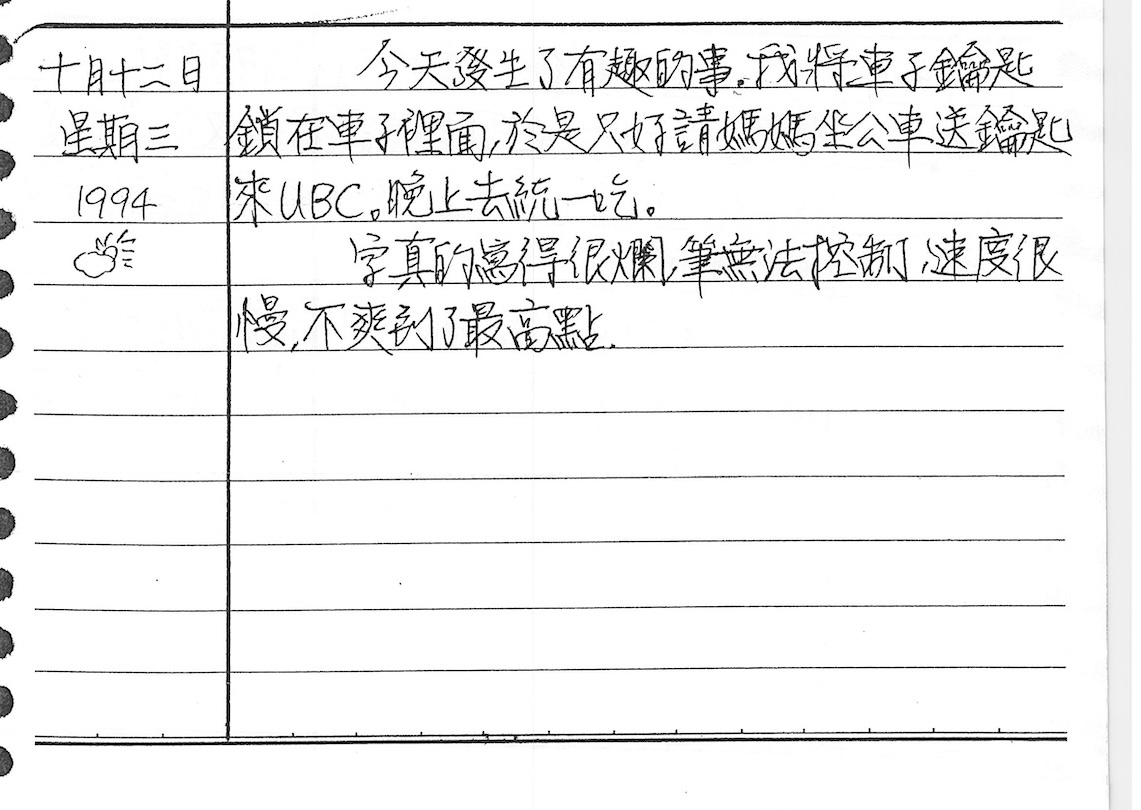 十月十二日
星期三
1994
今天發生了有趣的事.我將車子鑰匙
鎖在車子裡面,於是只好請媽媽坐公車送鑰匙
來UBC。晚上去統一吃。
字真的寫得很爛,筆無法控制,速度很
慢,不爽到了最高點.